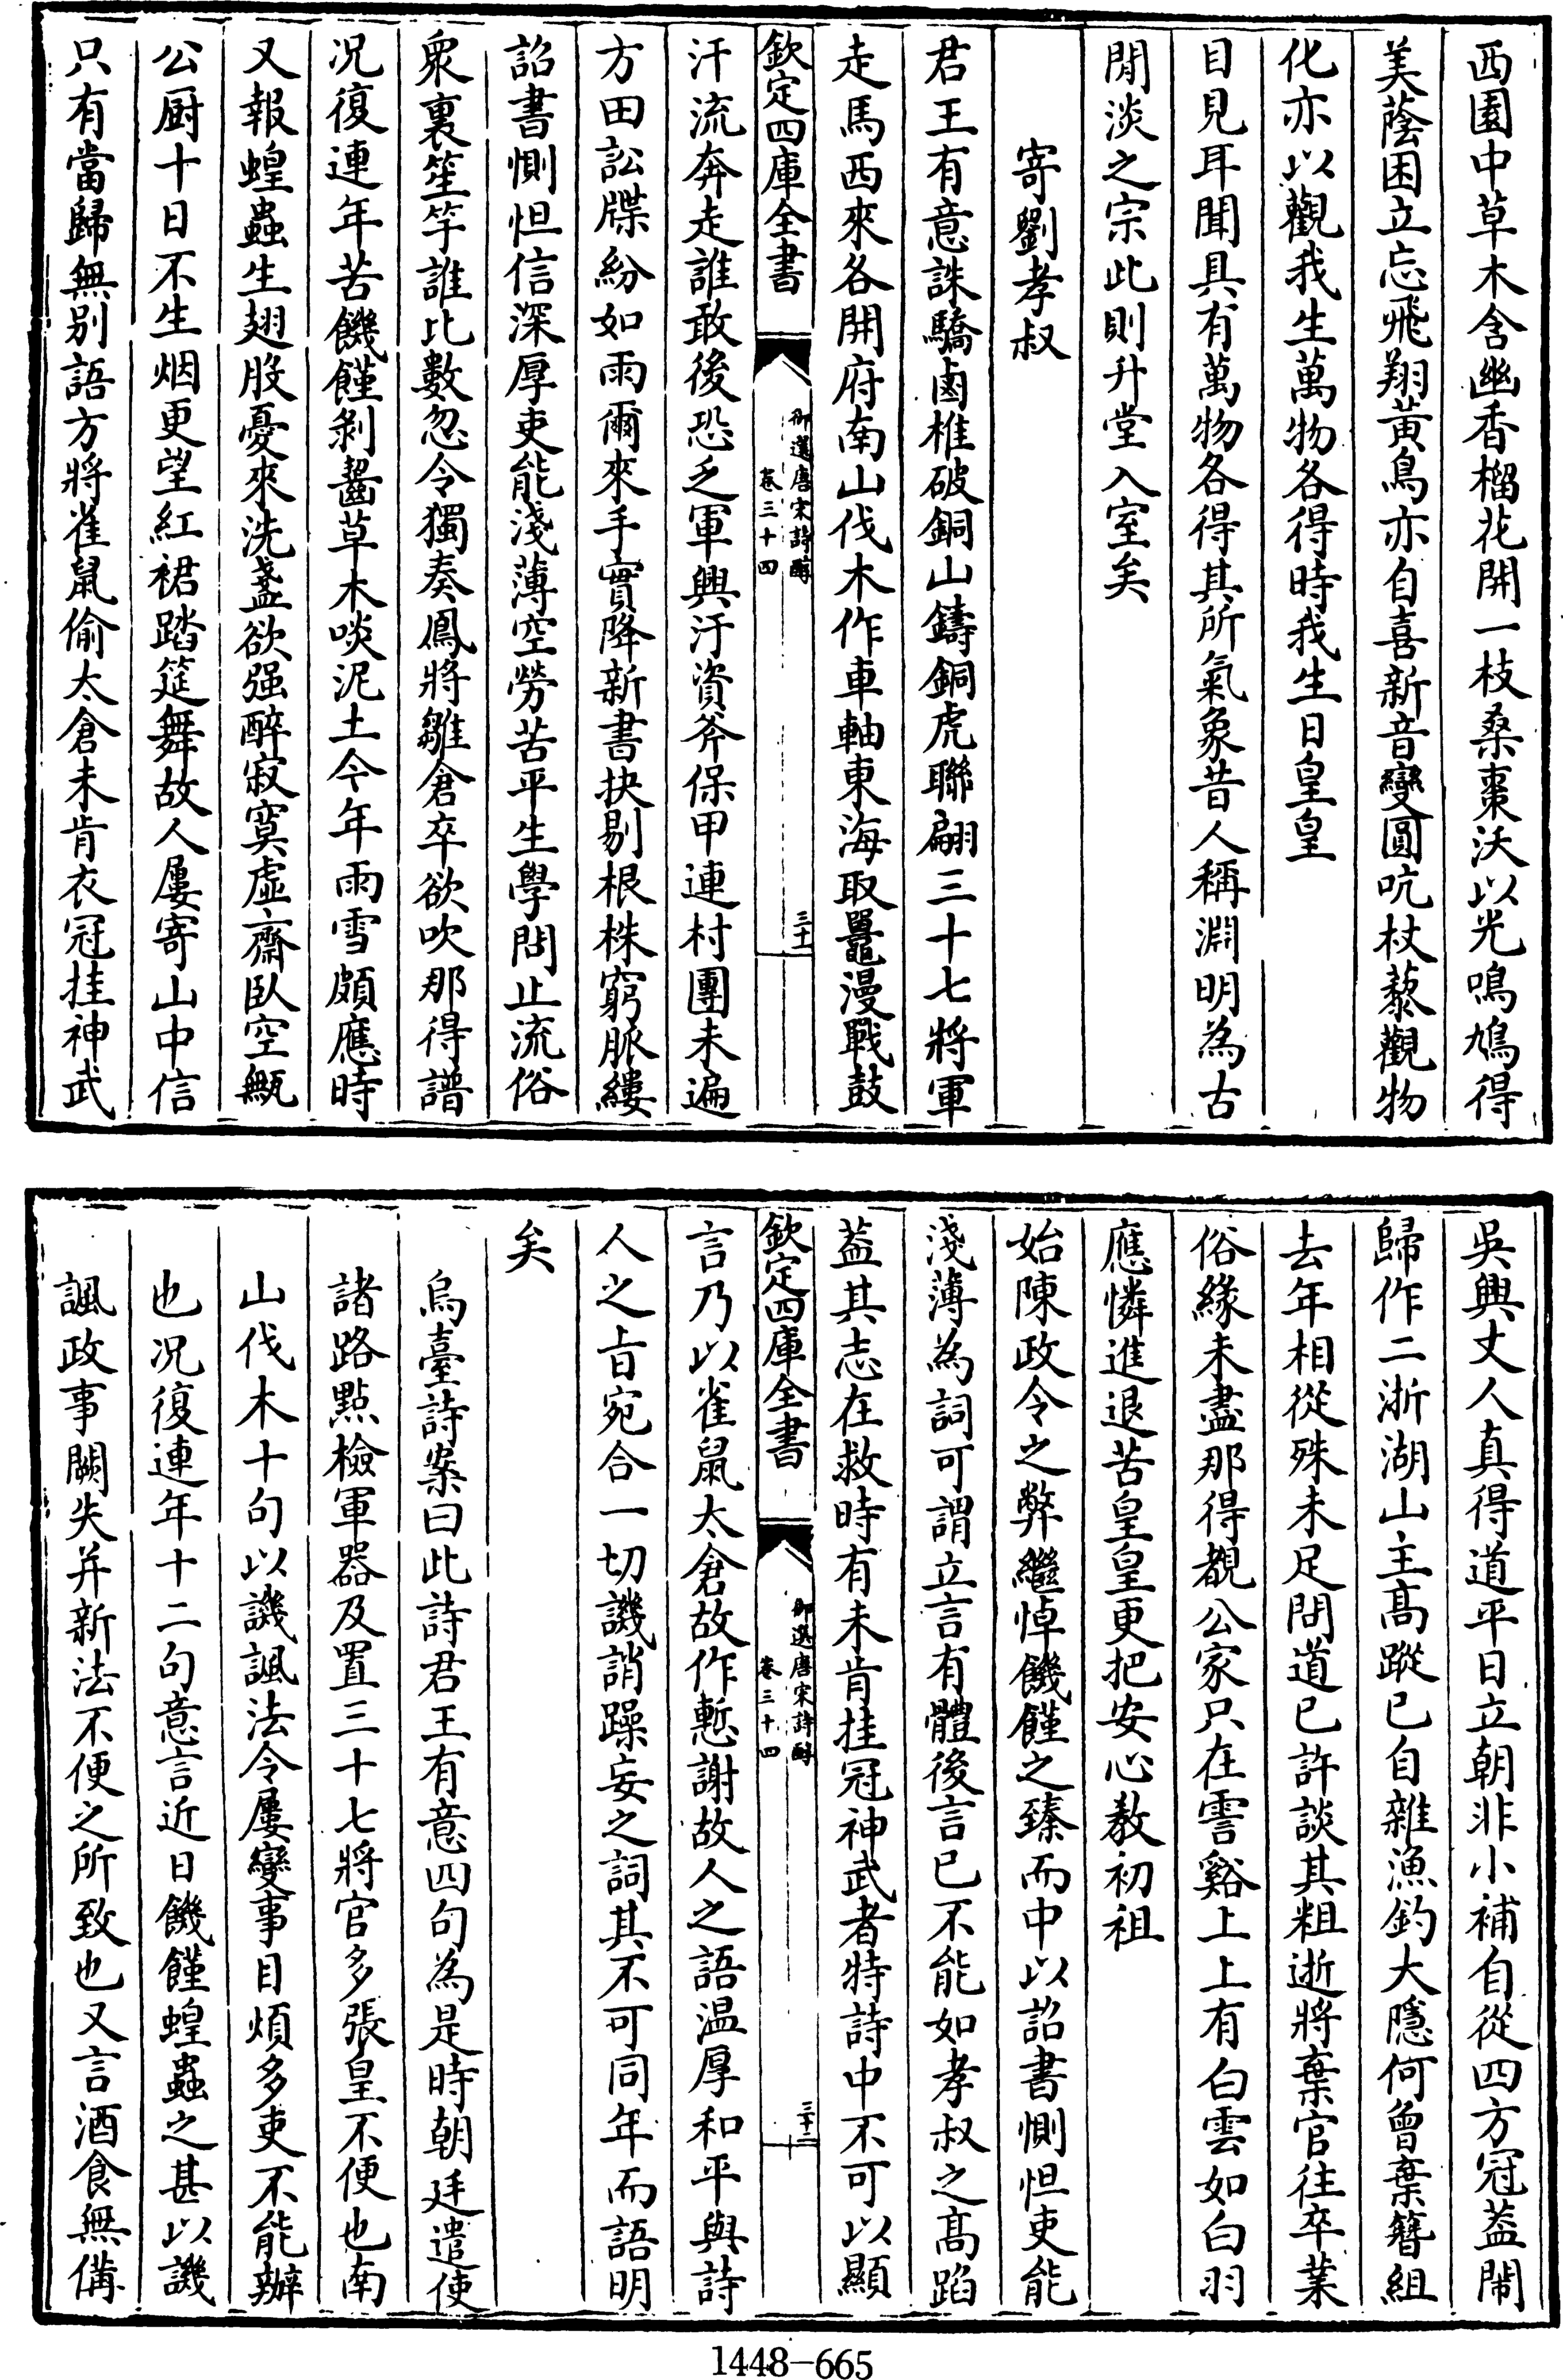 西園中草木含幽香榴花開一枝桑棗沃以光鳴鳩得
美蔭困立忘飛翔黃鳥亦自喜新音變圓吭杖藜觀物
化亦以觀我生萬物各得時我生日皇皇
目見耳聞具有萬物各得其所氣象昔人稱淵明為古
閒淡之宗此則升堂入室矣
寄劉孝叔
君王有意誅驕鹵椎破銅山鑄銅虎聯翩三十七將軍
走馬西來各開府南山伐木作車軸東海取鼉漫戰鼓
欽定四庫全書
御選唐宋詩醇
卷三十四
三十一
汗流奔走誰敢後恐乏軍興汙資斧保甲連村團未遍
方田訟牒紛如雨爾來手實降新書抉剔根株窮脈縷
詔書惻怛信深厚吏能淺薄空勞苦平生學問止流俗
衆裏笙竽誰比數忽令獨奏鳳將雛倉卒欲吹那得譜
况復連年苦饑饉剝齧草木啖泥土今年雨雪頗應時
又報蝗蟲生翅股憂來洗盞欲强醉寂寞虛齋臥空甒
公厨十日不生烟更望紅裙踏筵舞故人屢寄山中信
只有當歸無别語方將雀鼠偷太倉未肯衣冠挂神武
吳興丈人真得道平日立朝非小補自從四方冠蓋鬧
歸作二浙湖山主髙蹤已自雜漁釣大隱何曾棄簪組
去年相從殊未足問道已許談其粗逝將棄官往卒業
俗緣未盡那得覩公家只在霅谿上上有白雲如白羽
應憐進退苦皇皇更把安心教初祖
始陳政令之弊繼悼饑饉之臻而中以詔書惻怛吏能
淺薄為詞可謂立言有體後言已不能如孝叔之髙蹈
蓋其志在救時有未肯挂冠神武者特詩中不可以顯
欽定四庫全書
御選唐宋詩醇
卷三十四
三十二
言乃以雀鼠太倉故作慙謝故人之語温厚和平與詩
人之㫖宛合一切譏誚躁妄之詞其不可同年而語明
矣
烏臺詩案曰此詩君王有意四句為是時朝廷遣使
諸路點檢軍器及置三十七將官多張皇不便也南
山伐木十句以譏諷法令屢變事目煩多吏不能辦
也况復連年十二句意言近日饑饉蝗蟲之甚以譏
諷政事闕失并新法不便之所致也又言酒食無備
1448-665